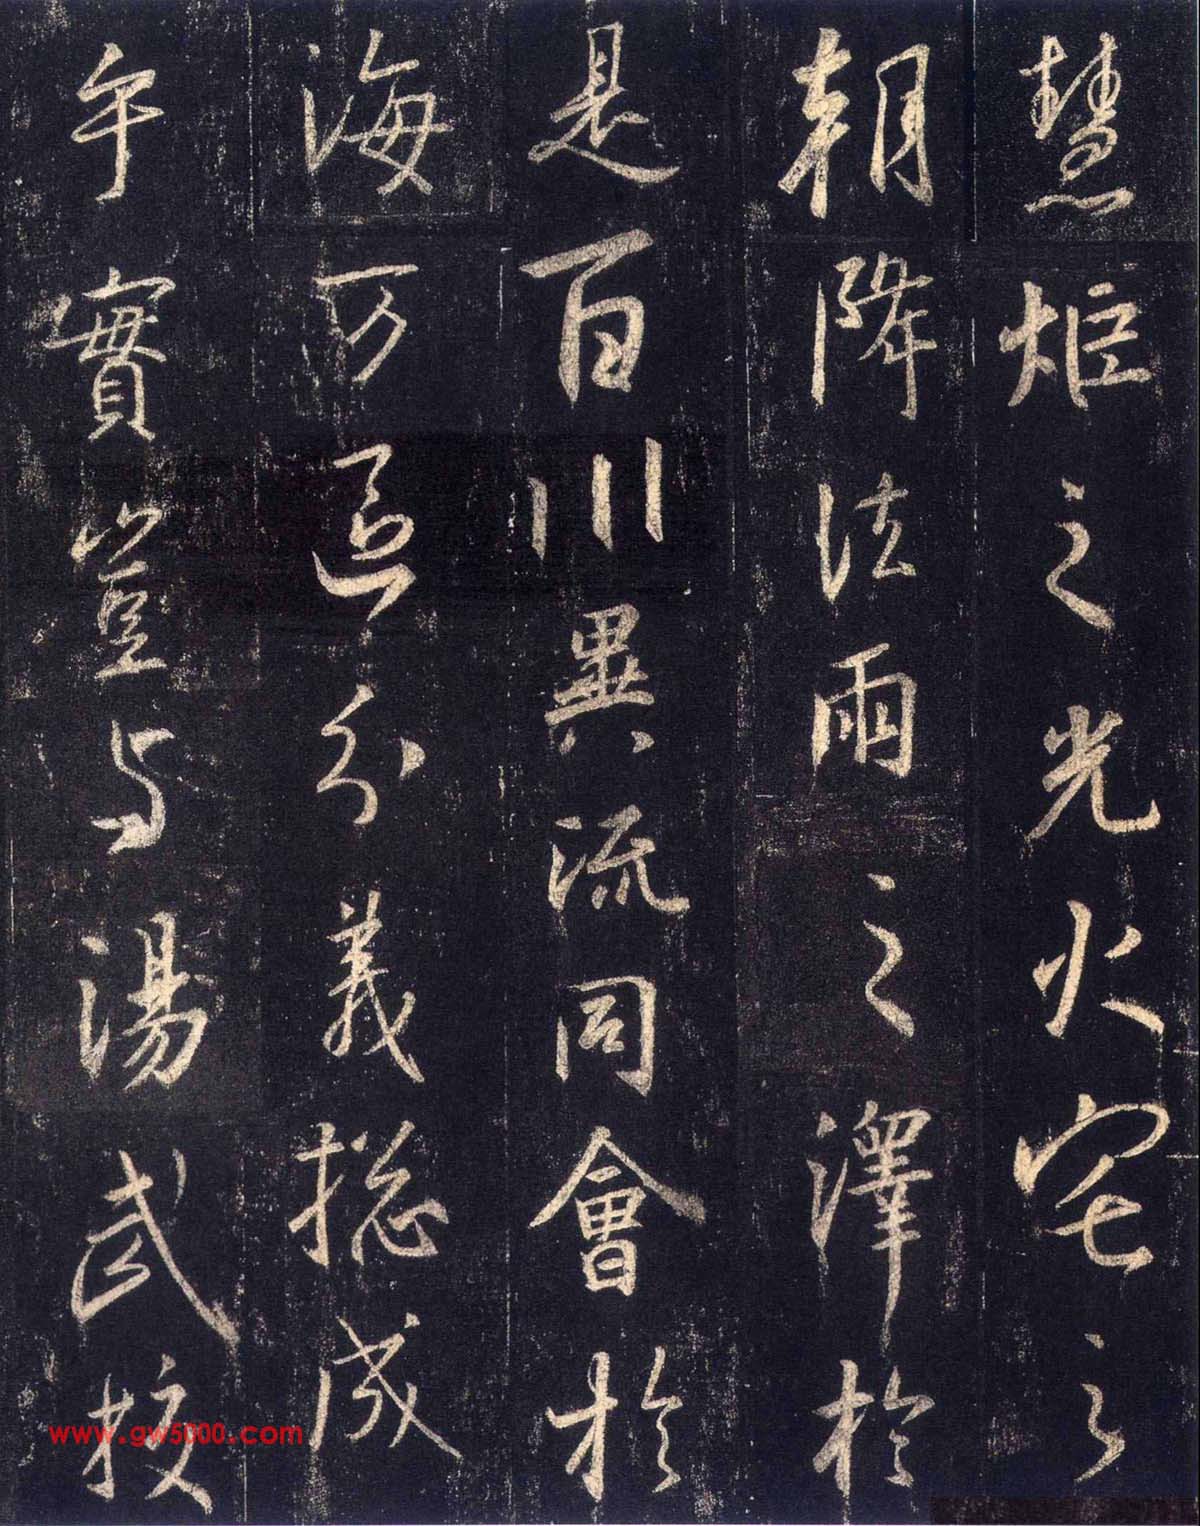 慧炬之光火宅之
朝降法雨之澤於
是百川異流同會於
海万區分義揔成
乎實豈与湯武挍
www.gw5000.com